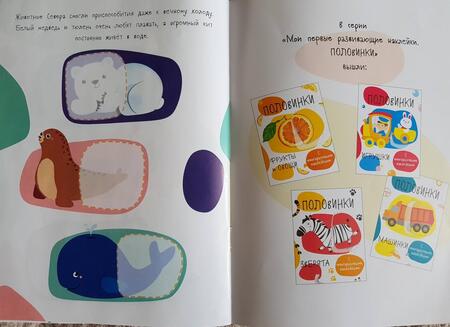 Животные Севера смогли приспособиться даже к вечному холоду.
Белый медведь и тюлень очень любят плавать, а огромный кит
постоянно живёт в воде.
В серии
«Мои первые развивающие наклейки.
ПОЛОВИНКИ»
вышли:
ПОЛОВИНКИ
ФРУКТЫ
и ОВОЩИ
ПОЛОВИНКИ
ИГРУШКИ
ПОЛОВИНКИ
ЗВЕРЯТА
ПОЛОВИНКИ
МАШИНКИ